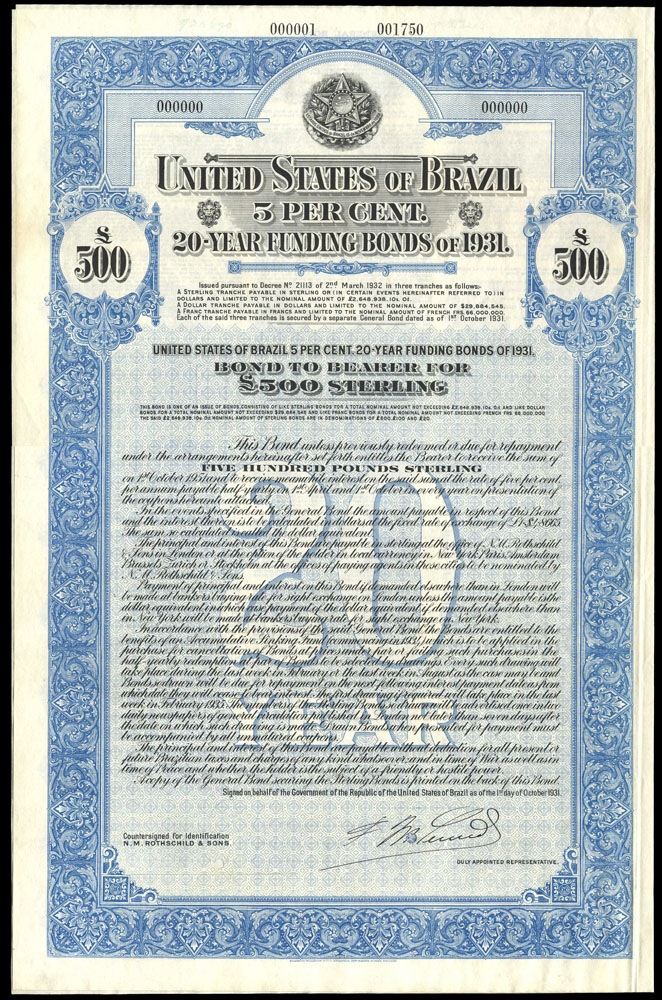 000001 001750
000000 000000
UNITED STATES OF BRAZIL
5 PER CENT.
20-YEAR FUNDING BONDS OF 1931.
£ £
500 500
Issued pursuant to Decree Nº 21113 of 2nd March 1932 in three tranches as follows:-
A STERLING TRANCHE PAYABLE IN STERLING OR (IN CERTAIN EVENTS HEREINAFTER REFERRED TO) IN
DOLLARS AND LIMITED TO THE NOMINAL AMOUNT OF £2,648,938. 10s. 0d.
A DOLLAR TRANCHE PAYABLE IN DOLLARS AND LIMITED TO THE NOMINAL AMOUNT OF $29,884,548.
A FRANC TRANCHE PAYABLE IN FRANCS AND LIMITED TO THE NOMINAL AMOUNT OF FRENCH FRS. 66,000,000.
Each of the said three tranches is secured by a separate General Bond dated as of 1st October 1931.
UNITED STATES OF BRAZIL 5 PER CENT. 20-YEAR FUNDING BONDS OF 1931.
BOND TO BEARER FOR
£500 STERLING
THIS BOND IS ONE OF AN ISSUE OF BONDS CONSISTING OF LIKE STERLING BONDS FOR A TOTAL NOMINAL AMOUNT NOT EXCEEDING £2,648,938. 10s. 0d. AND LIKE DOLLAR
BONDS FOR A TOTAL NOMINAL AMOUNT NOT EXCEEDING $29,884,548 AND LIKE FRANC BONDS FOR A TOTAL NOMINAL AMOUNT NOT EXCEEDING FRENCH FRS. 66,000,000.
THE SAID £2,648,938. 10s. 0d. NOMINAL AMOUNT OF STERLING BONDS ARE IN DENOMINATIONS OF £500, £100 AND £20.
This Bond unless previously redeemed or due for repayment
under the arrangements hereinafter set forth entitles the Bearer to receive the sum of
FIVE HUNDRED POUNDS STERLING
on 1st October 1951 and to receive meanwhile interest on the said sum at the rate of five per cent.
per annum payable half-yearly on 1st April and 1st October in every year on presentation of
the coupons hereunto attached.
In the events specified in the General Bond the amount payable in respect of this Bond
and the interest thereon is to be calculated in dollars at the fixed rate of exchange of £1=$4.8665
the sum so calculated is called the dollar equivalent.
The principal and interest of this Bond are payable in sterling at the office of N.M. Rothschild
& Sons in London or at the option of the holder in local currency in New York Paris Amsterdam
Brussels Zurich or Stockholm at the offices of paying agents in those cities to be nominated by
N. M. Rothschild & Sons.
Payment of principal and interest on this Bond if demanded elsewhere than in London will
be made at bankers buying rate for sight exchange on London unless the amount payable is the
dollar equivalent in which case payment of the dollar equivalent if demanded elsewhere than
in New York will be made at bankers buying rate for sight exchange on New York.
In accordance with the provisions of the said General Bond the Bonds are entitled to the
benefits of an Accumulative Sinking Fund commencing in 1934, which is to be applied in the
purchase for cancellation of Bonds at prices under par or failing such purchases in the
half-yearly redemption at par of Bonds to be selected by drawings. Every such drawing will
take place during the last week in February or the last week in August as the case may be and
Bonds so drawn will be due for repayment on the next following interest payment date as from
which date they will cease to bear interest. The first drawing if required will take place in the last
week in February 1935. The numbers of the Sterling Bonds so drawn will be advertised once in two
daily newspapers of general circulation published in London not later than seven days after
the date on which such drawing is made. Drawn Bonds when presented for payment must
be accompanied by all unmatured coupons.
The principal and interest of this Bond are payable without deduction for all present or
future Brazilian taxes and charges of any kind whatsoever, and in time of War as well as in
time of Peace and whether the holder is the subject of a friendly or hostile power.
A copy of the General Bond securing the Sterling Bonds is printed on the back of this Bond.
Signed on behalf of the Government of the Republic of the United States of Brazil as of the 1st day of October 1931.
Countersigned for Identification
N. M. ROTHSCHILD & SONS.
DULY APPOINTED REPRESENTATIVE.
20
YEAR